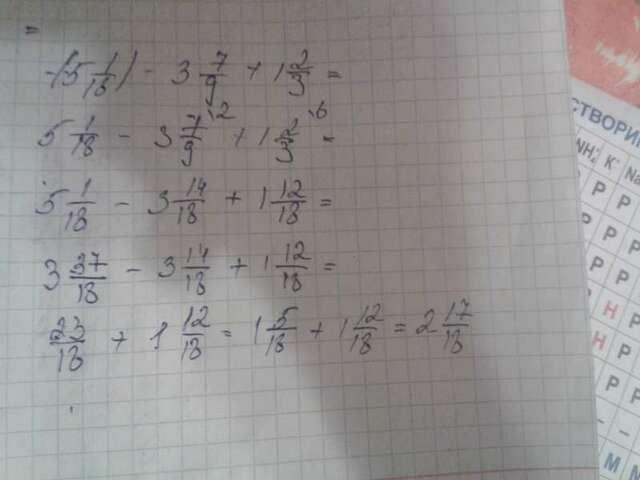 =
-(5 1/18) - 3 7/9 + 1 2/3 =
5 1/18 - 3 7/9 ·2 + 1 2/3 ·6 =
5 1/18 - 3 14/18 + 1 12/18 =
3 37/18 - 3 14/18 + 1 12/18 =
23/18 + 1 12/18 = 1 5/18 + 1 12/18 = 2 17/18
СТВОРИ
NH K⁺ Na
P P
P P
P P
P P
P
Н P
Н P
P P
P P
– –
М М